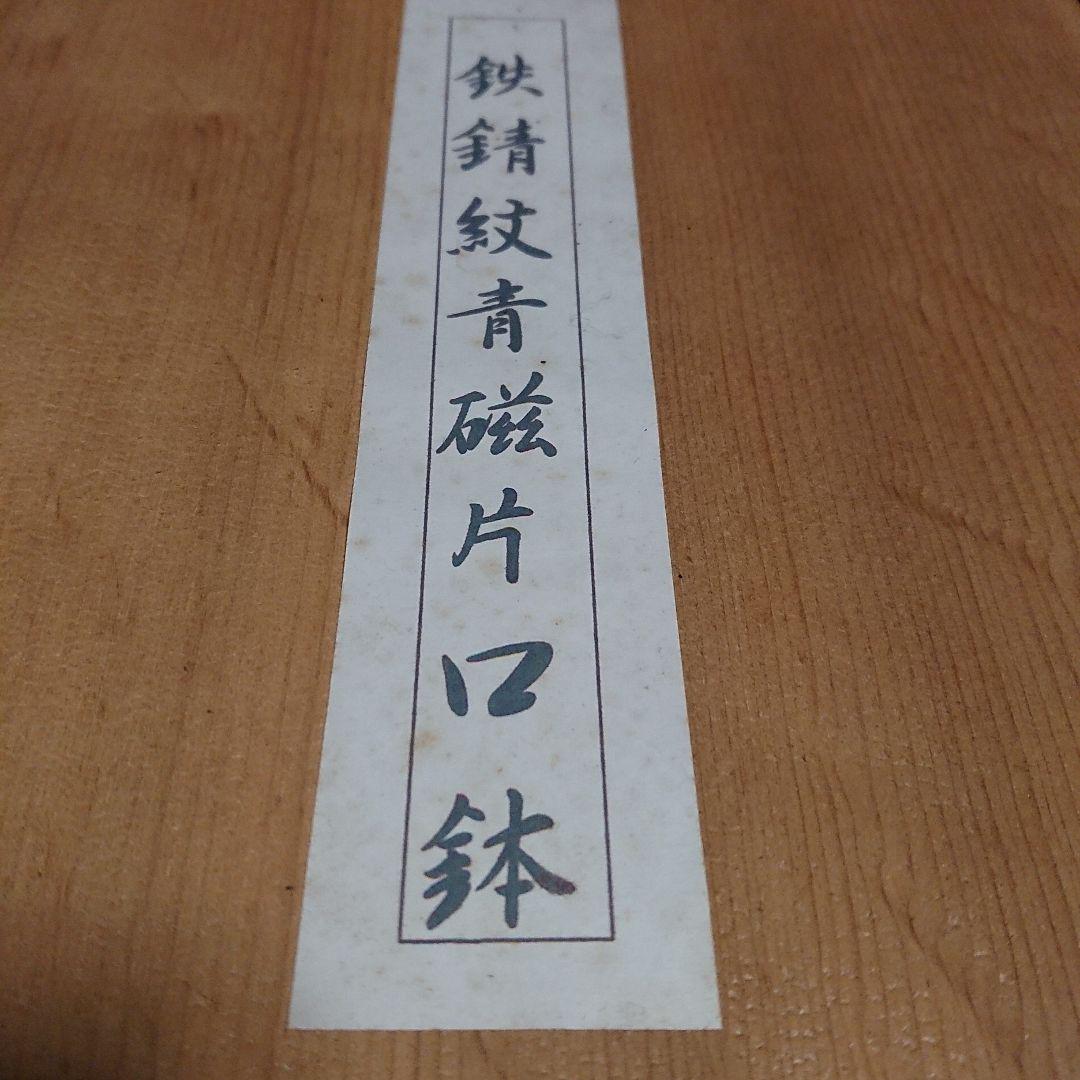 鉄錆紋青磁片口鉢